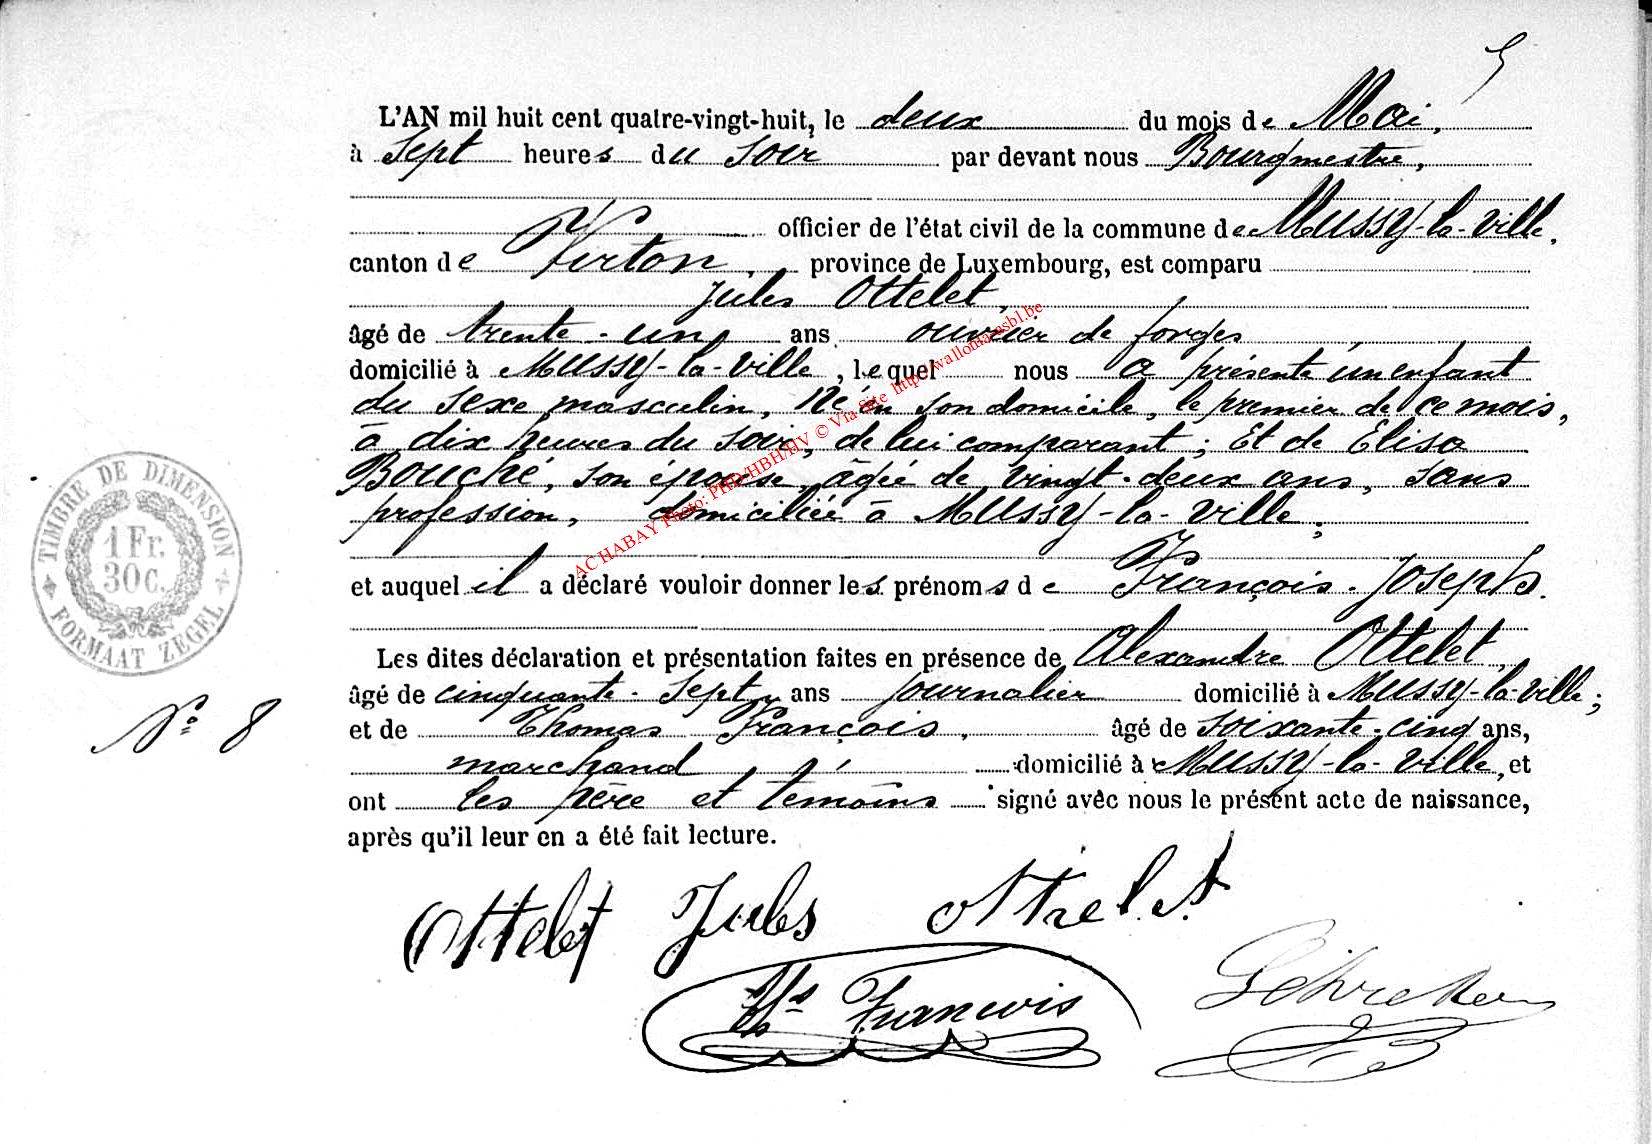 5
L'AN mil huit cent quatre-vingt-huit, le deux du mois de Mai,
à Sept heures du soir par devant nous Bourgmestre,
officier de l'état civil de la commune de Mussy-la-Ville,
canton de Virton, province de Luxembourg, est comparu
Jules Ottelet,
âgé de trente-un ans ouvrier de forges,
domicilié à Mussy-la-Ville, lequel nous a présenté un enfant
du sexe masculin, né en son domicile, le premier de ce mois,
à dix heures du soir, de lui comparant; Et de Elisa
Bouché, son épouse, âgée de vingt-deux ans, sans
profession, domiciliée à Mussy-la-Ville;
et auquel il a déclaré vouloir donner les prénoms de François-Joseph.
Les dites déclaration et présentation faites en présence de Alexandre Ottelet,
âgé de cinquante-sept ans journalier domicilié à Mussy-la-Ville;
et de Thomas François, âgé de soixante-cinq ans,
marchand, domicilié à Mussy-la-Ville, et
ont les père et témoins signé avec nous le présent acte de naissance,
après qu'il leur en a été fait lecture.
Ottelet Jules Ottelet
Ths François
TIMBRE DE DIMENSION
1 Fr.
30 c.
FORMAAT ZEGEL
N° 8
ACHABAY Photo: PHD/HBH/HV © Via Site http://wallonia-asbl.be